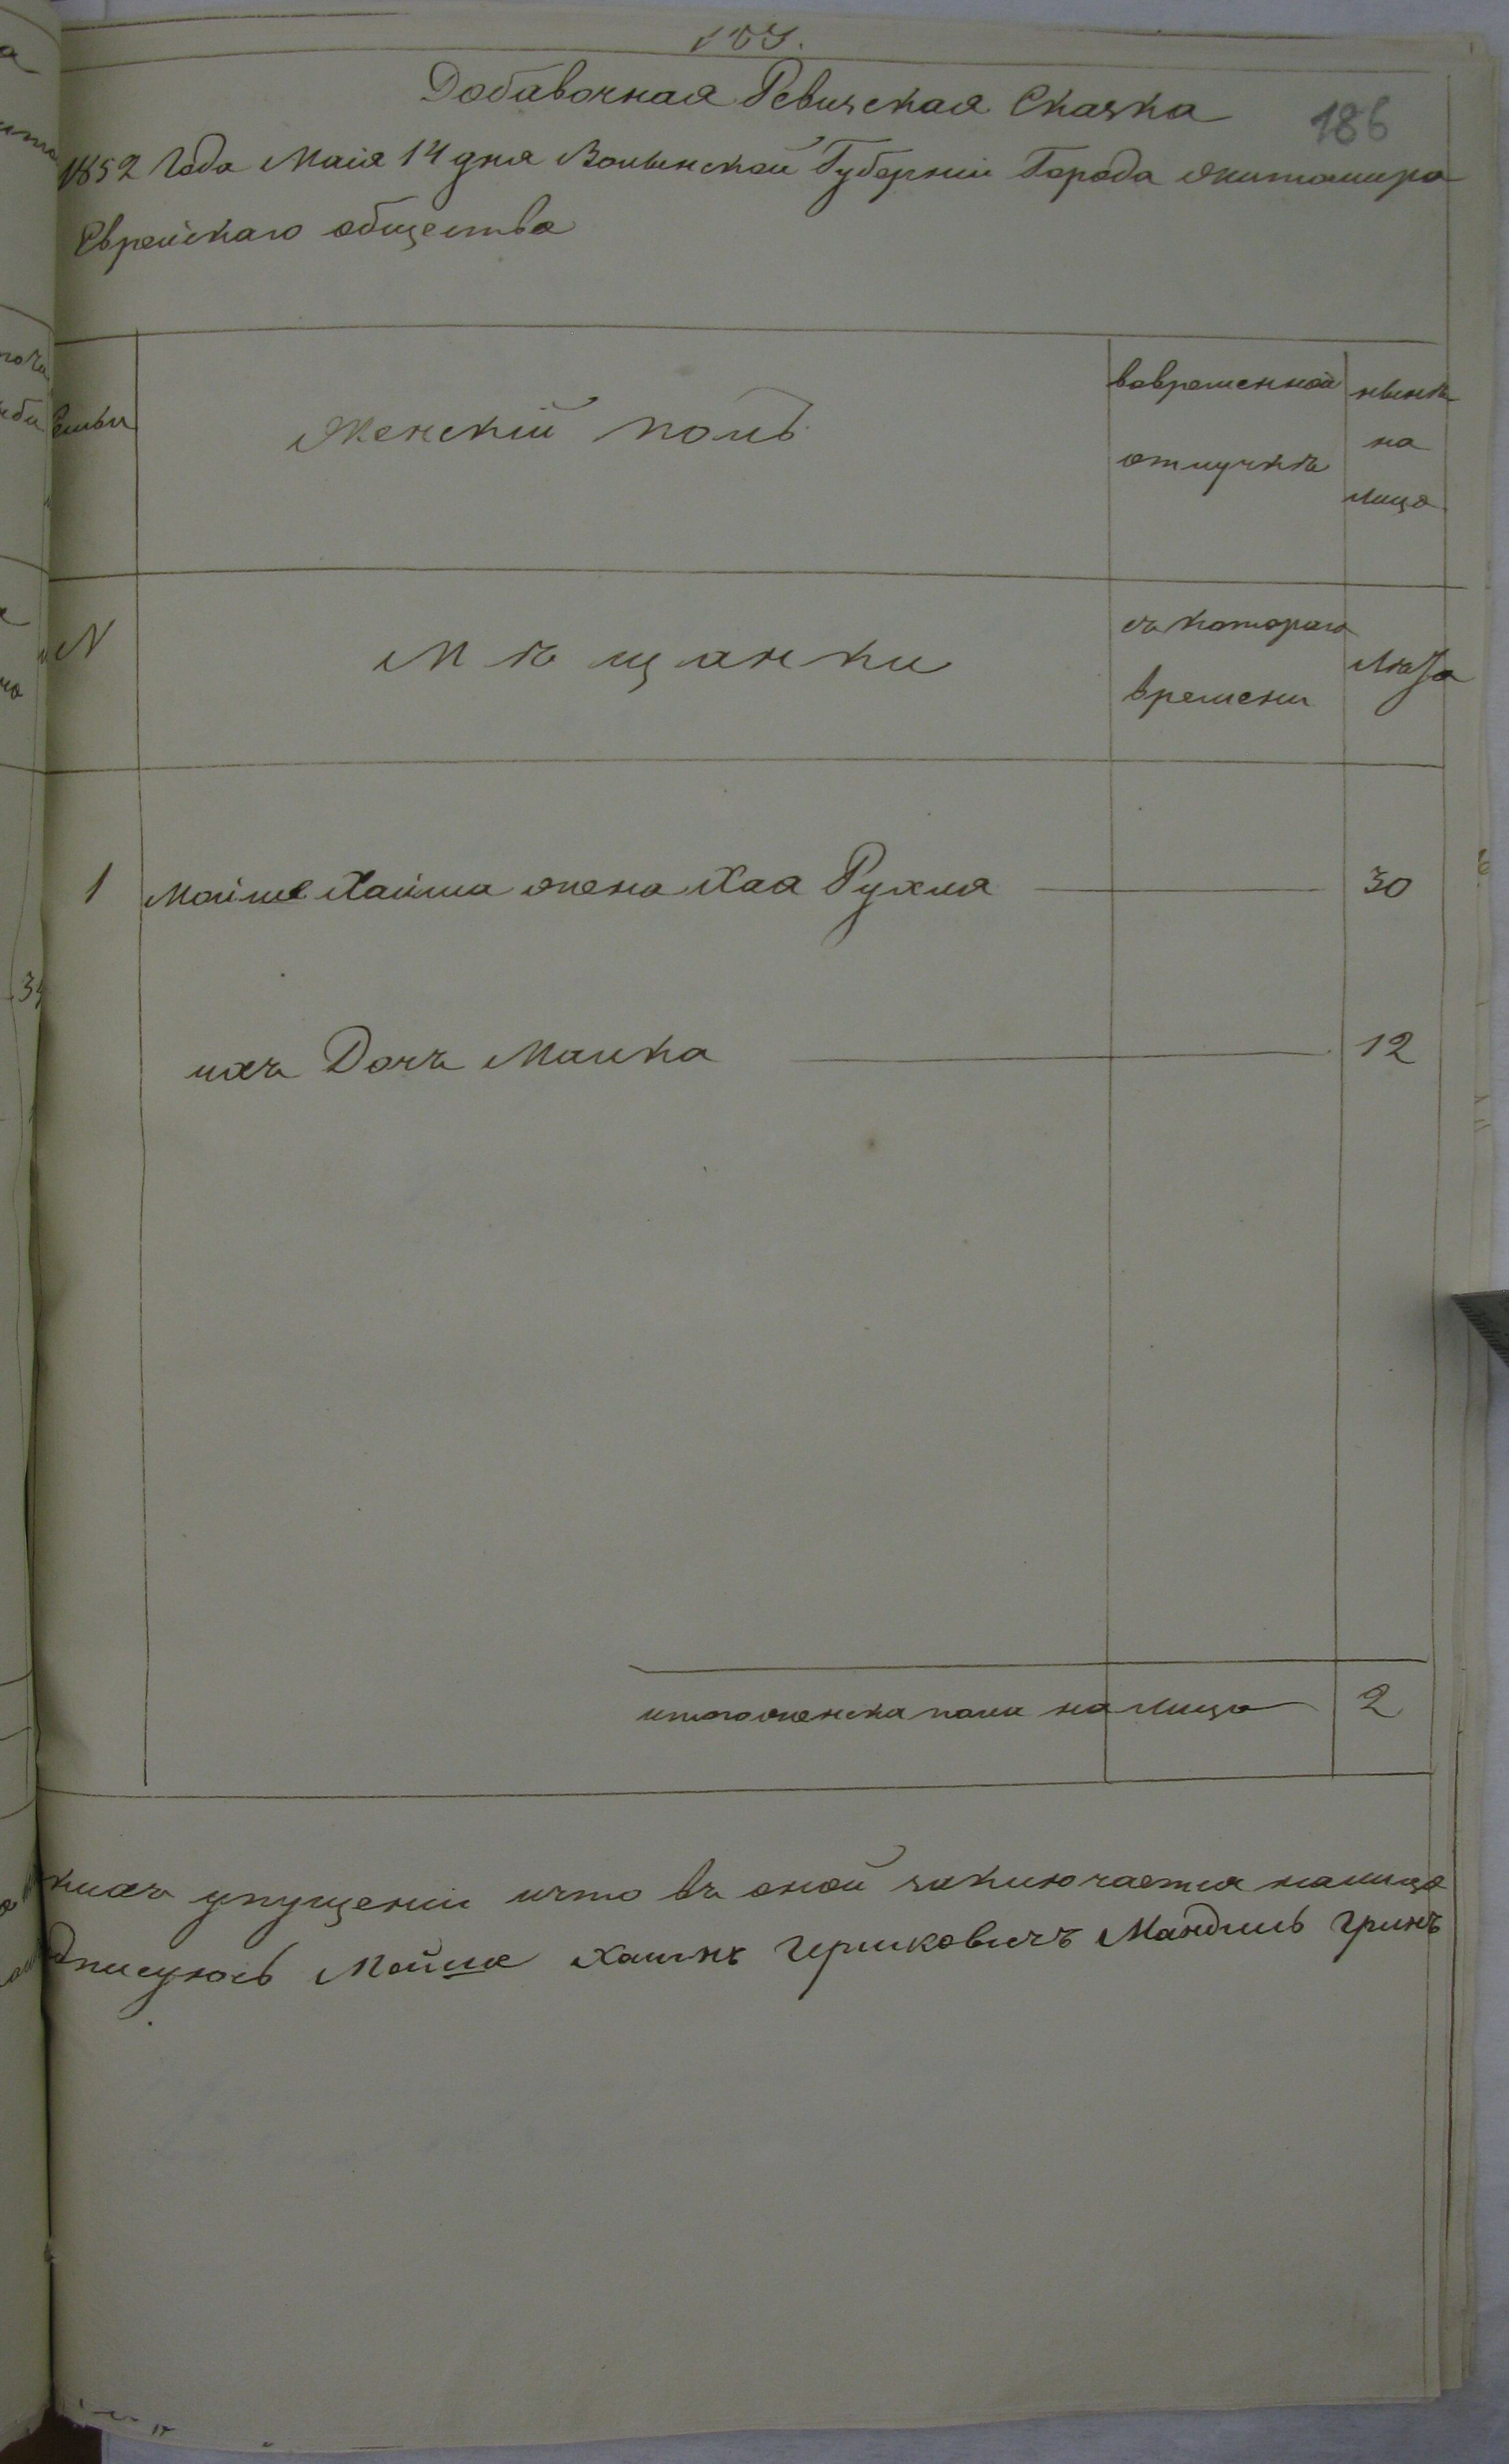 Добавочная Ревизская Сказка
186
1852 Года Маія 14 дня Волынской Губерніи Города Житомира
Еврейскаго общества
Женскій полъ
вовременной отлучкѣ
нынѣ на лицо
N
Мѣщанки
съ котораго времени
Лѣта
1 Мойше Хаима жена Хая Рухля 30
ихъ Дочь Малка 12
итого женска пола на лицо 2
упущеній что въ оной заключается налицо
Мойше Хаимъ Гершковичъ Мандиль Гринъ